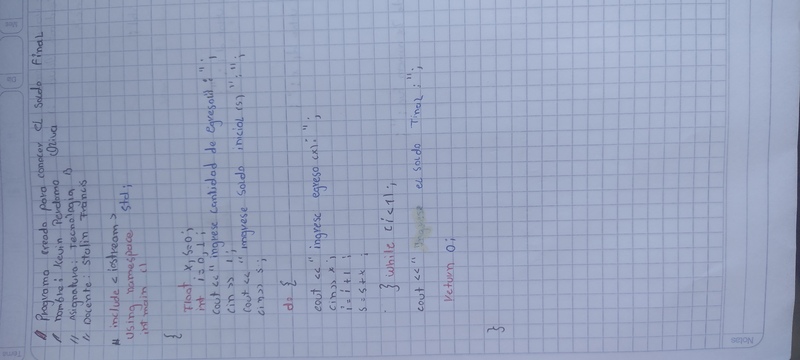 // Programa creado para conocer el saldo Final
// nombre: Kevin Perdomo Oliva
// asignatura: Tecnologia B
// Docente: Stalin Francis
# include <iostream>
using namespace std;
int main ()
{
Float x, s=0;
int i=0, 1;
cout << " ingrese cantidad de egresos(1): ";
cin >> 1;
cout << " imgrese saldo inicial (s) ":";
cin >> s;
do {
cout << " ingrese egreso (x): ";
cin >> x;
i = i + 1 ;
s = s + x ;
} while (i < 1);
cout << " el saldo Final : ";
Return 0;
}
Notas